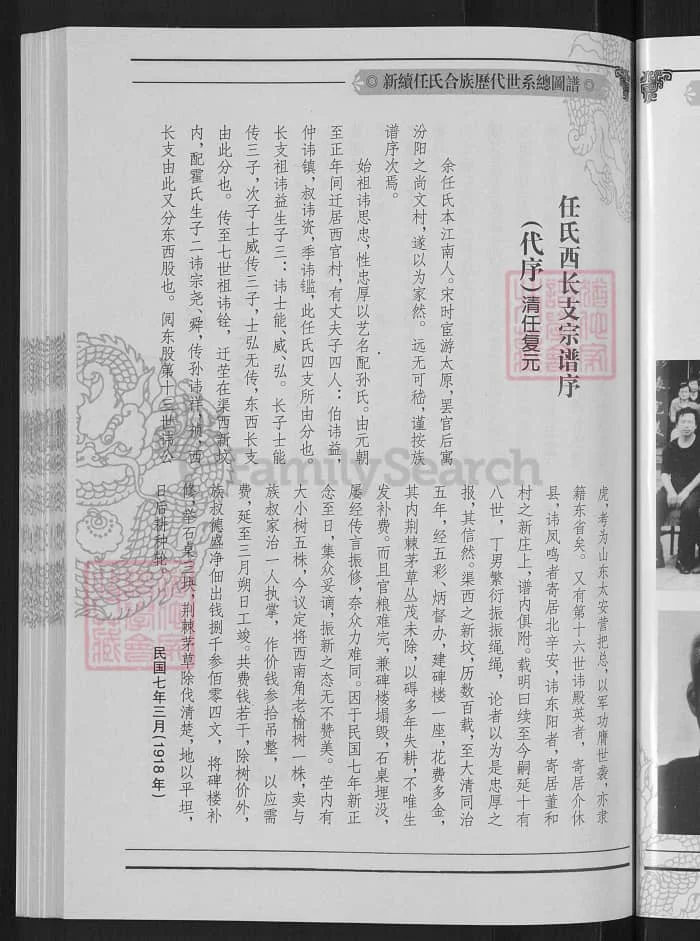 新續任氏合族歷代世系總圖譜
任氏西长支宗谱序
(代序)清任复元
余任氏本江南人。宋时宦游太原，罢官后寓
汾阳之尚文村，遂以为家然。远无可嵇，谨按族
谱序次焉。
始祖讳思忠，性忠厚以艺名配孙氏。由元朝
至正年间迁居西官村，有丈夫子四人：伯讳益，
仲讳镇，叔讳资，季讳镒，此任氏四支所由分也。
长支祖讳益生子三：讳士能、威、弘。长子士能
传三子，次子士威传三子，士弘无传，东西长支
由此分也。传至七世祖讳铨，迁茔在渠西新坟
内，配霍氏生子二讳宗尧、舜，传孙讳祥，祯，西
长支由此又分东西股也。阅东股第十三世讳公
虎，考为山东太安营把总，以军功膺世袭，亦隶
籍东省矣。又有第十六世讳殿英者，寄居介休
县，讳凤鸣者寄居北辛安，讳东阳者，寄居董和
村之新庄上，谱内俱附。载明曰续至今嗣延十有
八世，丁男繁衍振振绳绳，论者以为是忠厚之
报，其信然。渠西之新坟，历数百载，至大清同治
五年，经五彩、炳督办，建碑楼一座，花费多金，
其内荆棘茅草丛茂未除，以碍多年失耕，不唯生
发补费。而且官粮难完，兼碑楼塌毁，石桌埋没，
屡经传言振修，奈众力难同。因于民国七年新正
念至日，集众妥谪，振新之态无不赞美。茔内有
大小树五株，今议定将西南角老榆树一株，卖与
族叔家治一人执掌，作价钱参拾吊整，以应需
费，延至三月朔日工竣。共费钱若干，除树价外，
族叔德盛净佃出钱捌千参佰零四文，将碑楼补
修，举石桌三块，荆棘茅草除伐清楚，地以平坦，
日后耕种轮
民国七年三月(1918年)
FamilySearch